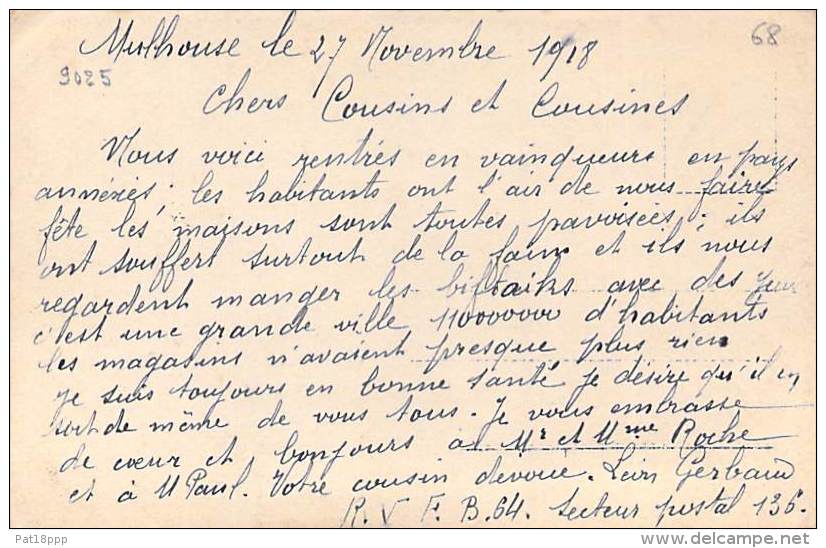 Mulhouse le 27 Novembre 1918
68
9025
Chers Cousins et Cousines
Nous voici rentrés en vainqueurs en pays
annéxiés; les habitants ont l'air de nous faire
fête les maisons sont toutes pavoisées; ils
ont souffert surtout de la faim et ils nous
regardent manger les biftaiks avec des yeux
c'est une grande ville 110000000 d'habitants
les magasins n'avaient presque plus rien
je suis toujours en bonne santé je désire qu'il en
soit de même de vous tous. Je vous embrasse
de cœur et bonjours à Mr et Mme Roche
et à M Paul. Votre cousin devoué. Léon Gerbaud
R. V F. B. 64. Secteur postal 136.
Pat18ppp
delcampe.net